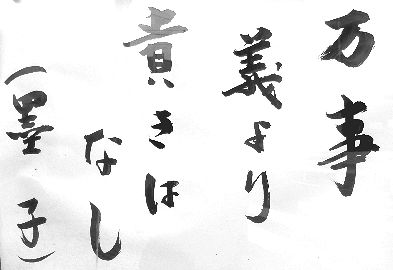 万事
義より
貴きは
なし
（墨子）